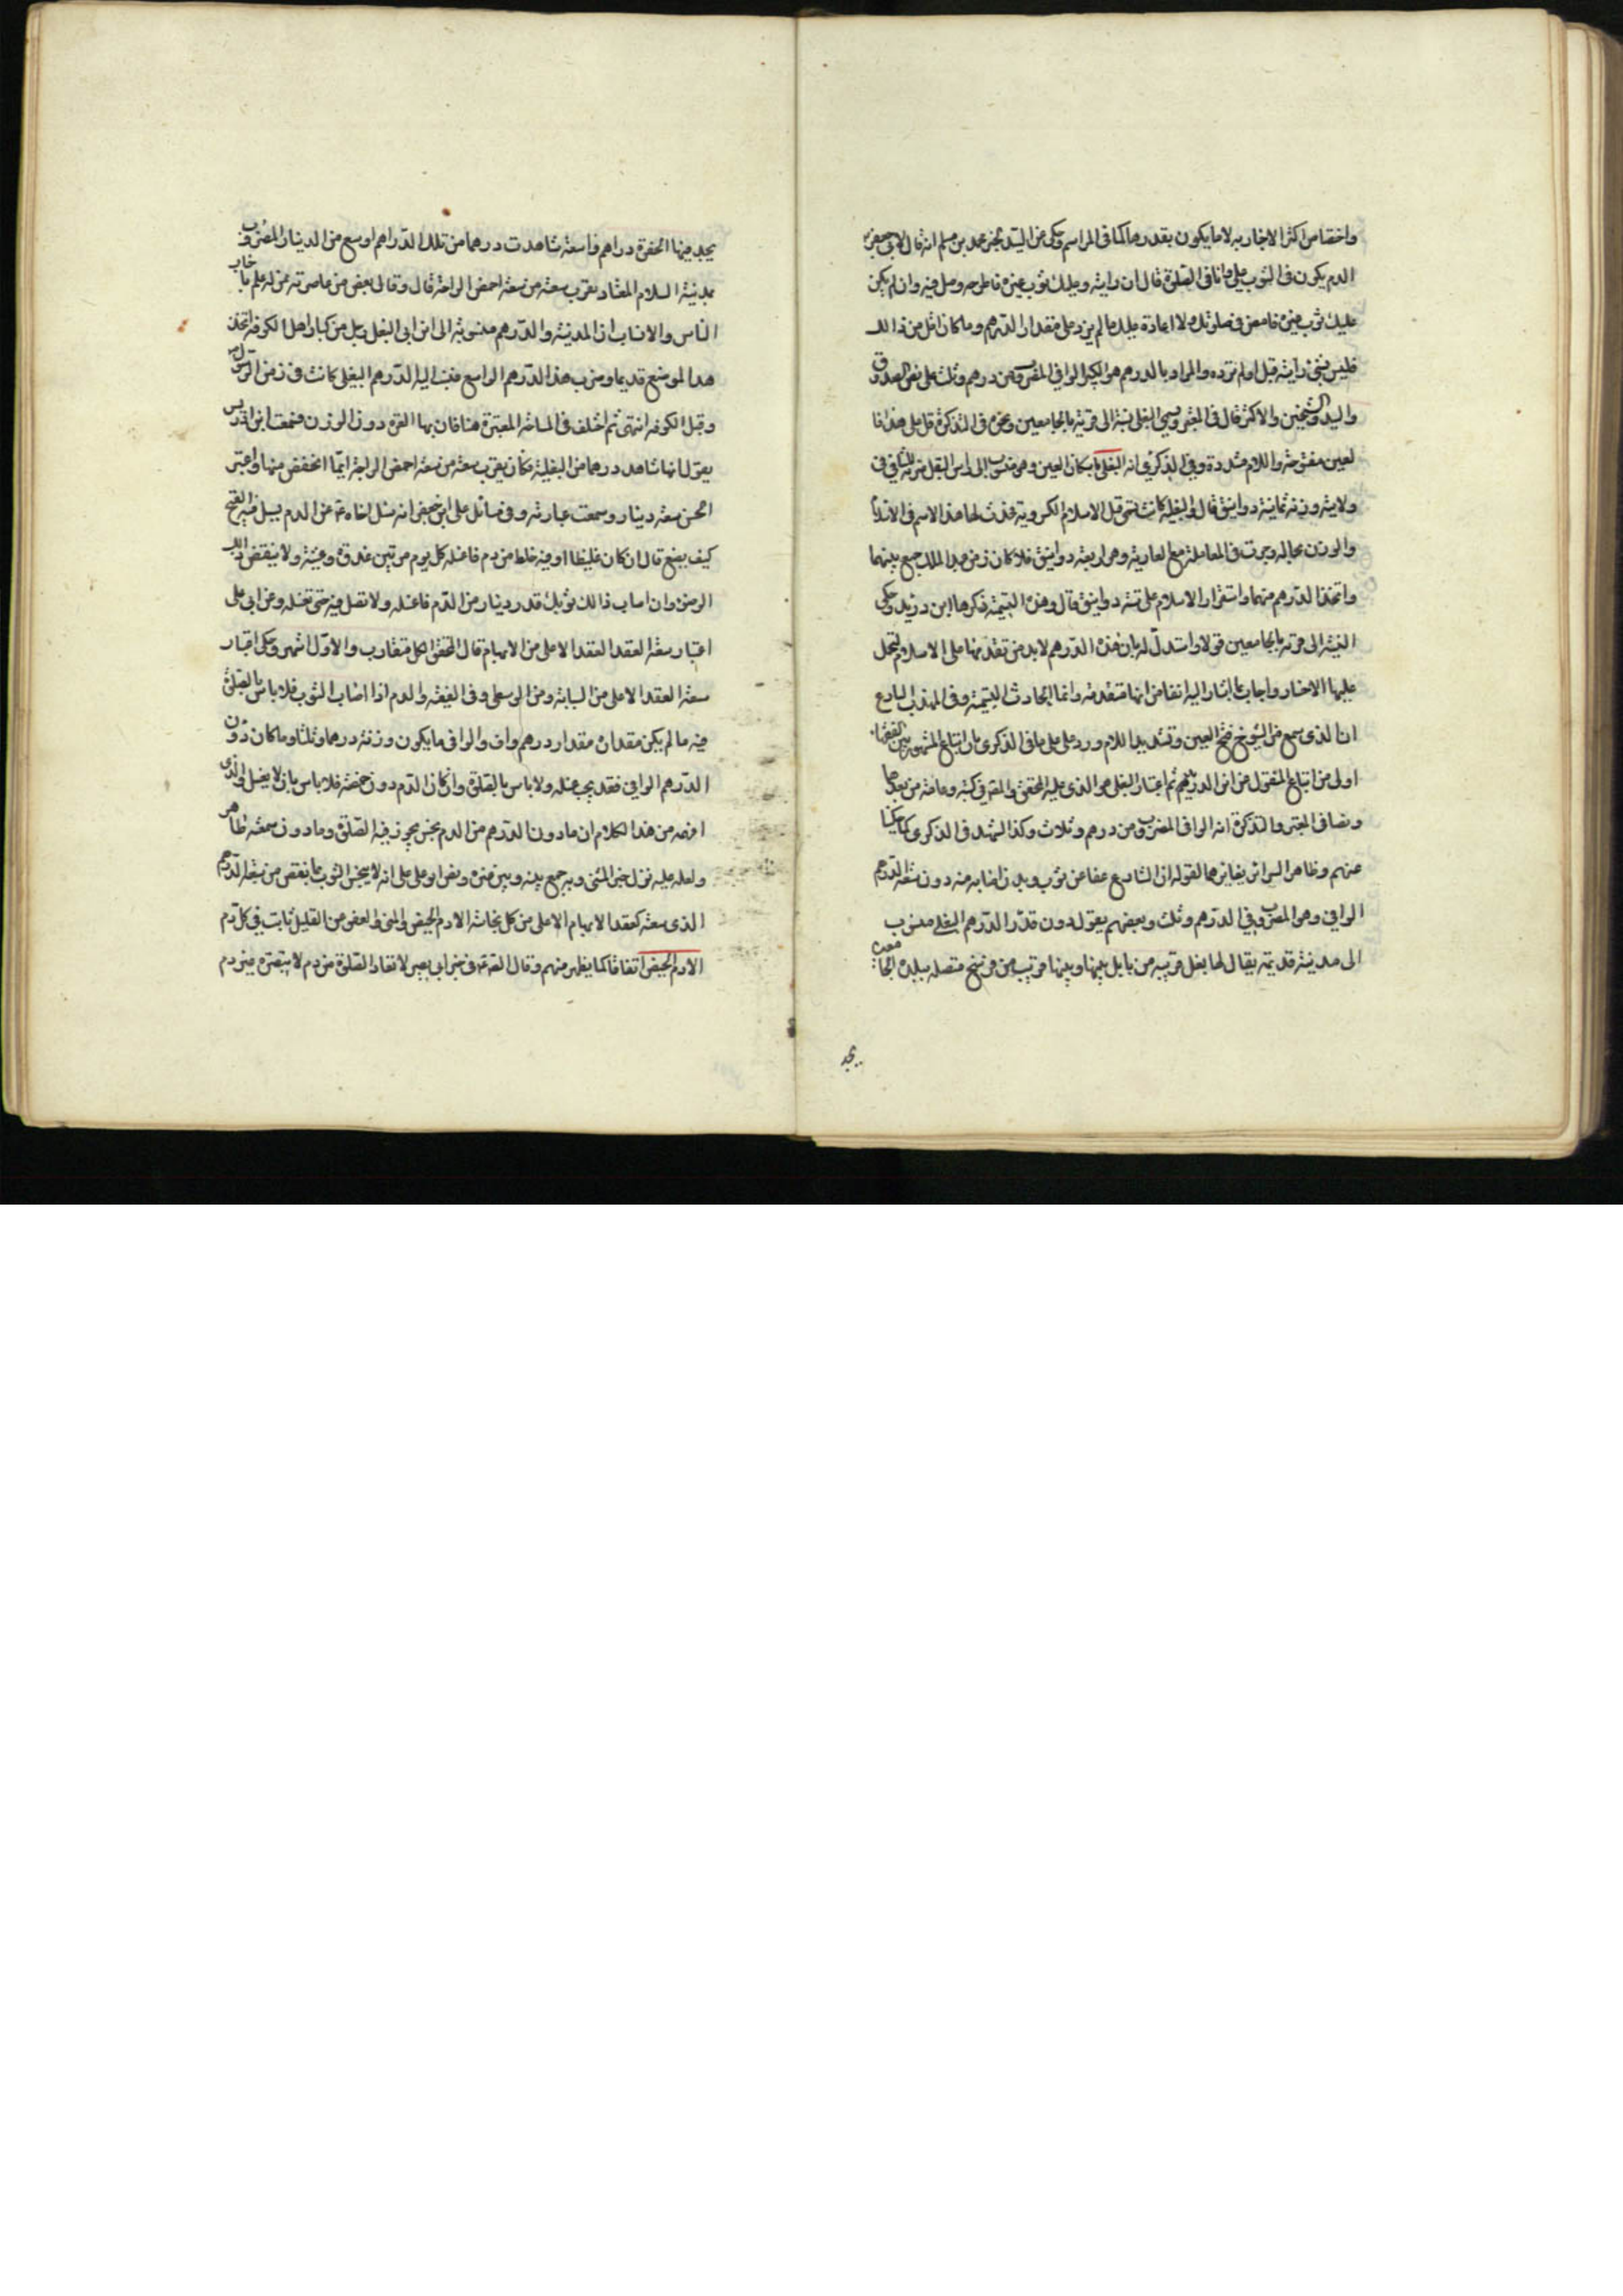 واختصاص اكثر الاخبار به لا ما يكون بقدرها كما فى المراسم وحكى عن السيد بخبر محمد بن مسلم انه قال لابى جعفر
الدم يكون فى الثوب على وانا فى الصلوة قال ان رايته وعليك ثوب غيره فاطرحه وصل فيه وان لم يكن
عليك ثوب غيره فامض فى صلوتك ولا اعادة عليك ما لم يزد على مقدار الدرهم وما كان اقل من ذالك
فليس بشئ رايته قبل او لم تره والمراد بالدرهم هو الكبير الوافى المضروب من درهم وثلث على نص الصدوق
والسيد والشيخين والاكثر قال فى المعتبر وسمى البغلى نسبة الى قرية بالجامعين ونحوه فى التذكرة قال على هذا فا
لعين مفتوحة واللام مشددة وفى الذكرى انه البغلى باسكان العين وهو منسوب الى راس البغل ضربه للثانى فى
ولايته وزنه ثمانية دوانيق قال والبغلية كانت تسمى قبل الاسلام الكسروية فحدث لها هذا الاسم فى الاسلام
والوزن بحاله وجرت فى المعاملة مع الطبرية وهى اربعة دوانيق فلما كان زمن عبد الملك جمع بينهما
واتخذ الدرهم منهما واستقرار الاسلام على ستة دوانيق قال وهذه التسمية ذكرها ابن دريد وحكى
النسبة الى قرية بالجامعين قولا واستدل له بان هذه الدراهم لا بد من تقدمها على الاسلام لتحمل
عليها الاخبار واجاب بما اشار اليه انفا من انها متقدمة وانما الحادث التسمية وفى المهذب البارع
ان الذى سمع من الشيوخ فتح العين وتشديد اللام ورد على ما فى الذكرى بان اتباع المشهور بين الفقهاء
اولى من اتباع المنقول عن ابن دريد ثم اعتبار البغلى هو الذى عليه المحقق والمص فى كتبه وعامة من بعدهما
ونصا فى المعتبر والتذكرة انه الوافى المضروب من درهم وثلاث وكذا الشهيد فى الذكرى كما حكينا
عنهم وظاهر السرائر يغايرهما لقوله ان الشارع عفا عن ثوب وبدن اصابه منه دون سعة الدرهم
الوافى وهو المضروب فى الدرهم وثلث وبعضهم يقول دون قدر الدرهم البغلى منسوب
الى مدينة قديمة يقال لها بغل قريبه من بابل بينها وبينها قريب من فرسخ متصله ببلدة الجامعين
يجد
يجد فيها الحفرة دراهم واسعة شاهدت درهما من تلك الدراهم اوسع من الدينار المضروب
بمدينة السلام المعتاد تقرب سعته من سعة اخمص الراحة قال وقال بعض من عاصرته ممن له علم باخبار
الناس والانساب ان المدينة والدرهم منسوبة الى ابن ابى البغل رجل من كبار اهل الكوفة اتخذ
هذا الموضع قديما وضرب هذا الدرهم الواسع فنسب اليه الدرهم البغلى كانت فى زمن الرسول
وقبل الكوفة انتهى ثم اختلف فى المساحة المعتبرة هنا فان بها العبرة دون الوزن فسمعت ابن ادريس
يقول انها شاهد درهما من البغلية فكان يقرب سعته من سعة اخمص الراحة ايما انخفض منها واعتبر
الحسن سعة دينار وسمعت عبارته وفى مسائل على ابن جعفر انه سئل اخاه عن الدم يسيل منه القيح
كيف يصنع قال ان كان غليظا او فيه خلط من دم فاغسله كل يوم مرتين غدوة وعشية ولا ينقض ذالك
الوضوء وان اصاب ذالك ثوبك قدر دينار من الدم فاغسله ولا تصل فيه حتى تغسله وعن ابى على
اعتبار سعة العقد العقد الاعلى من الابهام قال المحقق الكل متقارب والاول اشهر وحكى اعتبار
سعة العقد الاعلى من السبابة ومن الوسطى وفى الفقيه والدم اذا اصاب الثوب فلا باس بالصلوة
فيه ما لم يكن مقداره مقدار درهم واف والوافى ما يكون وزنه درهما وثلثا وما كان دون
الدرهم الوافى فقد يجب غسله ولا باس بالصلوة وان كان الدم دون حمصة فلا باس بان لا يغسل والذى
افهمه من هذا الكلام ان ما دون الدرهم من الدم نجس يجوز فيه الصلوة وما دون سعة ظاهر
ولعله عليه نزل خبر المثنى وبه جمع بينه وبين غيره ونص ابو على على انه لا ينجس الثوب ما نقص من سعة الدرهم
الذى سعته كعقد الابهام الاعلى من كل نجاسة الا دم الحيض والمنى والعفو من القليل ثابت فى كل دم
الا دم الحيض اتفاقا كما يظهر منهم وقال الصادق فى خبر ابى بصير لا تعاد الصلوة من دم لا تبصره غير دم